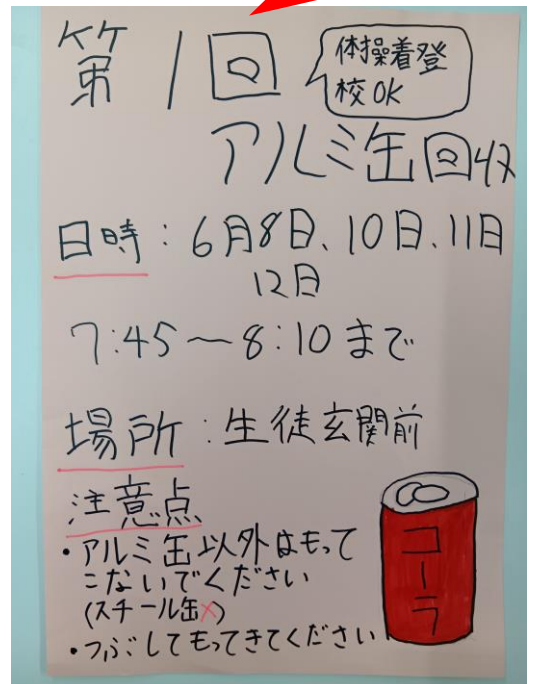 第1回
体操着登
校OK
アルミ缶回収
日時：6月8日、10日、11日
12日
7:45～8:10まで
場所：生徒玄関前
注意点
・アルミ缶以外はもって
こないでください
(スチール缶×)
・つぶしてもってきてください
コーラ